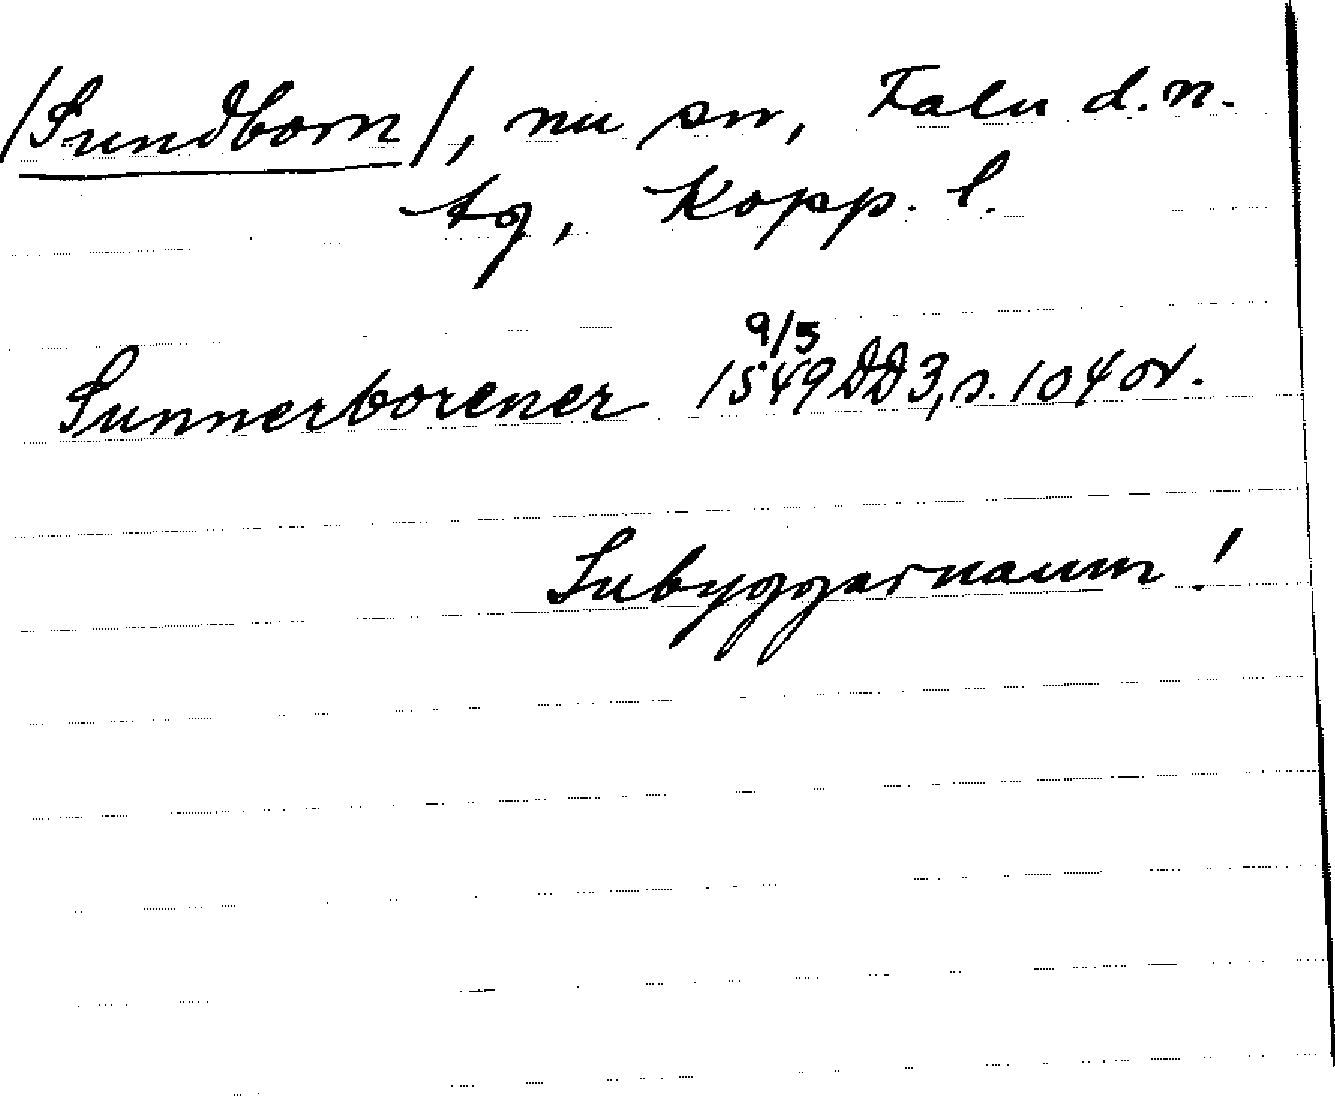 /Sundborn/, nu sn, Falu d.n.
tg, Kopp. l.
9/5
Sunnerborener 1549 DD3, s. 104 or.
Inbyggarnamn!